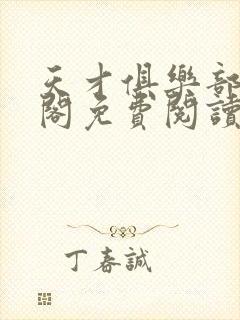 天才俱樂部
閣免費閱讀
丁春誠